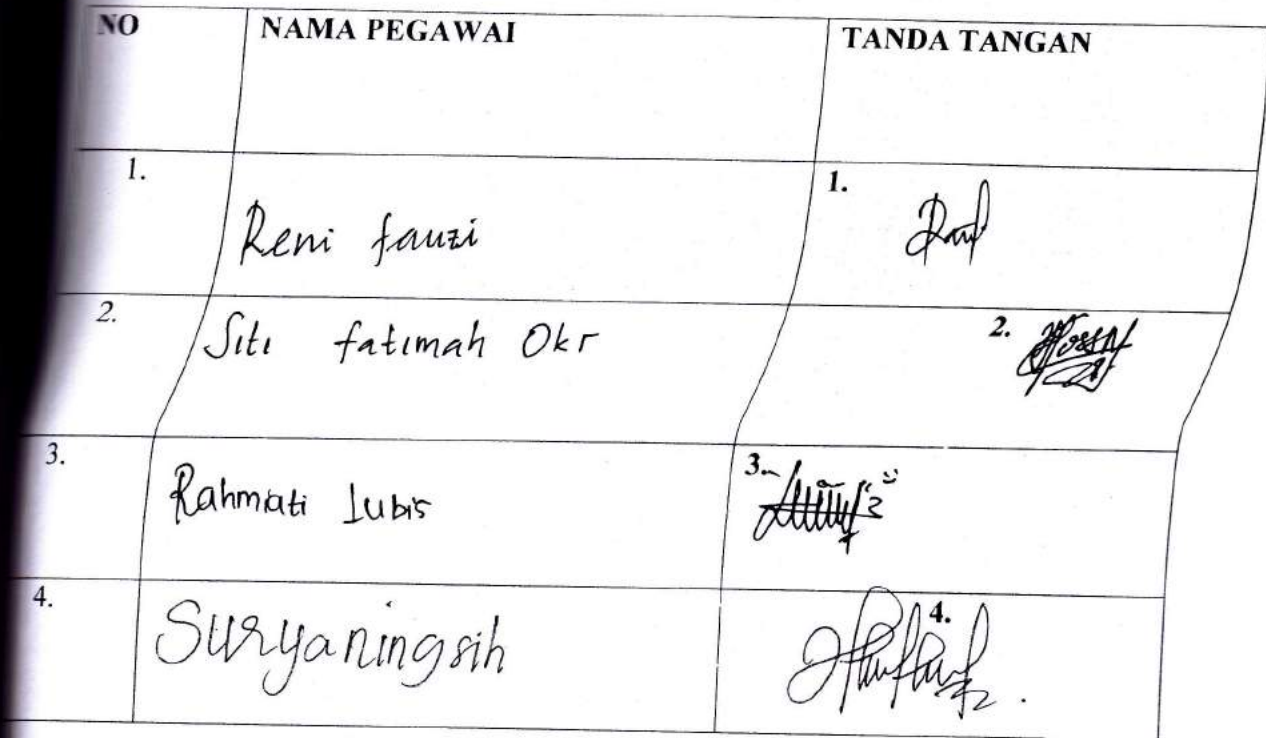 NO NAMA PEGAWAI TANDA TANGAN
1. Reni fauzi 1.
2. Siti fatimah Okr 2.
3. Rahmati Lubis 3.
4. Suryaningsih 4.